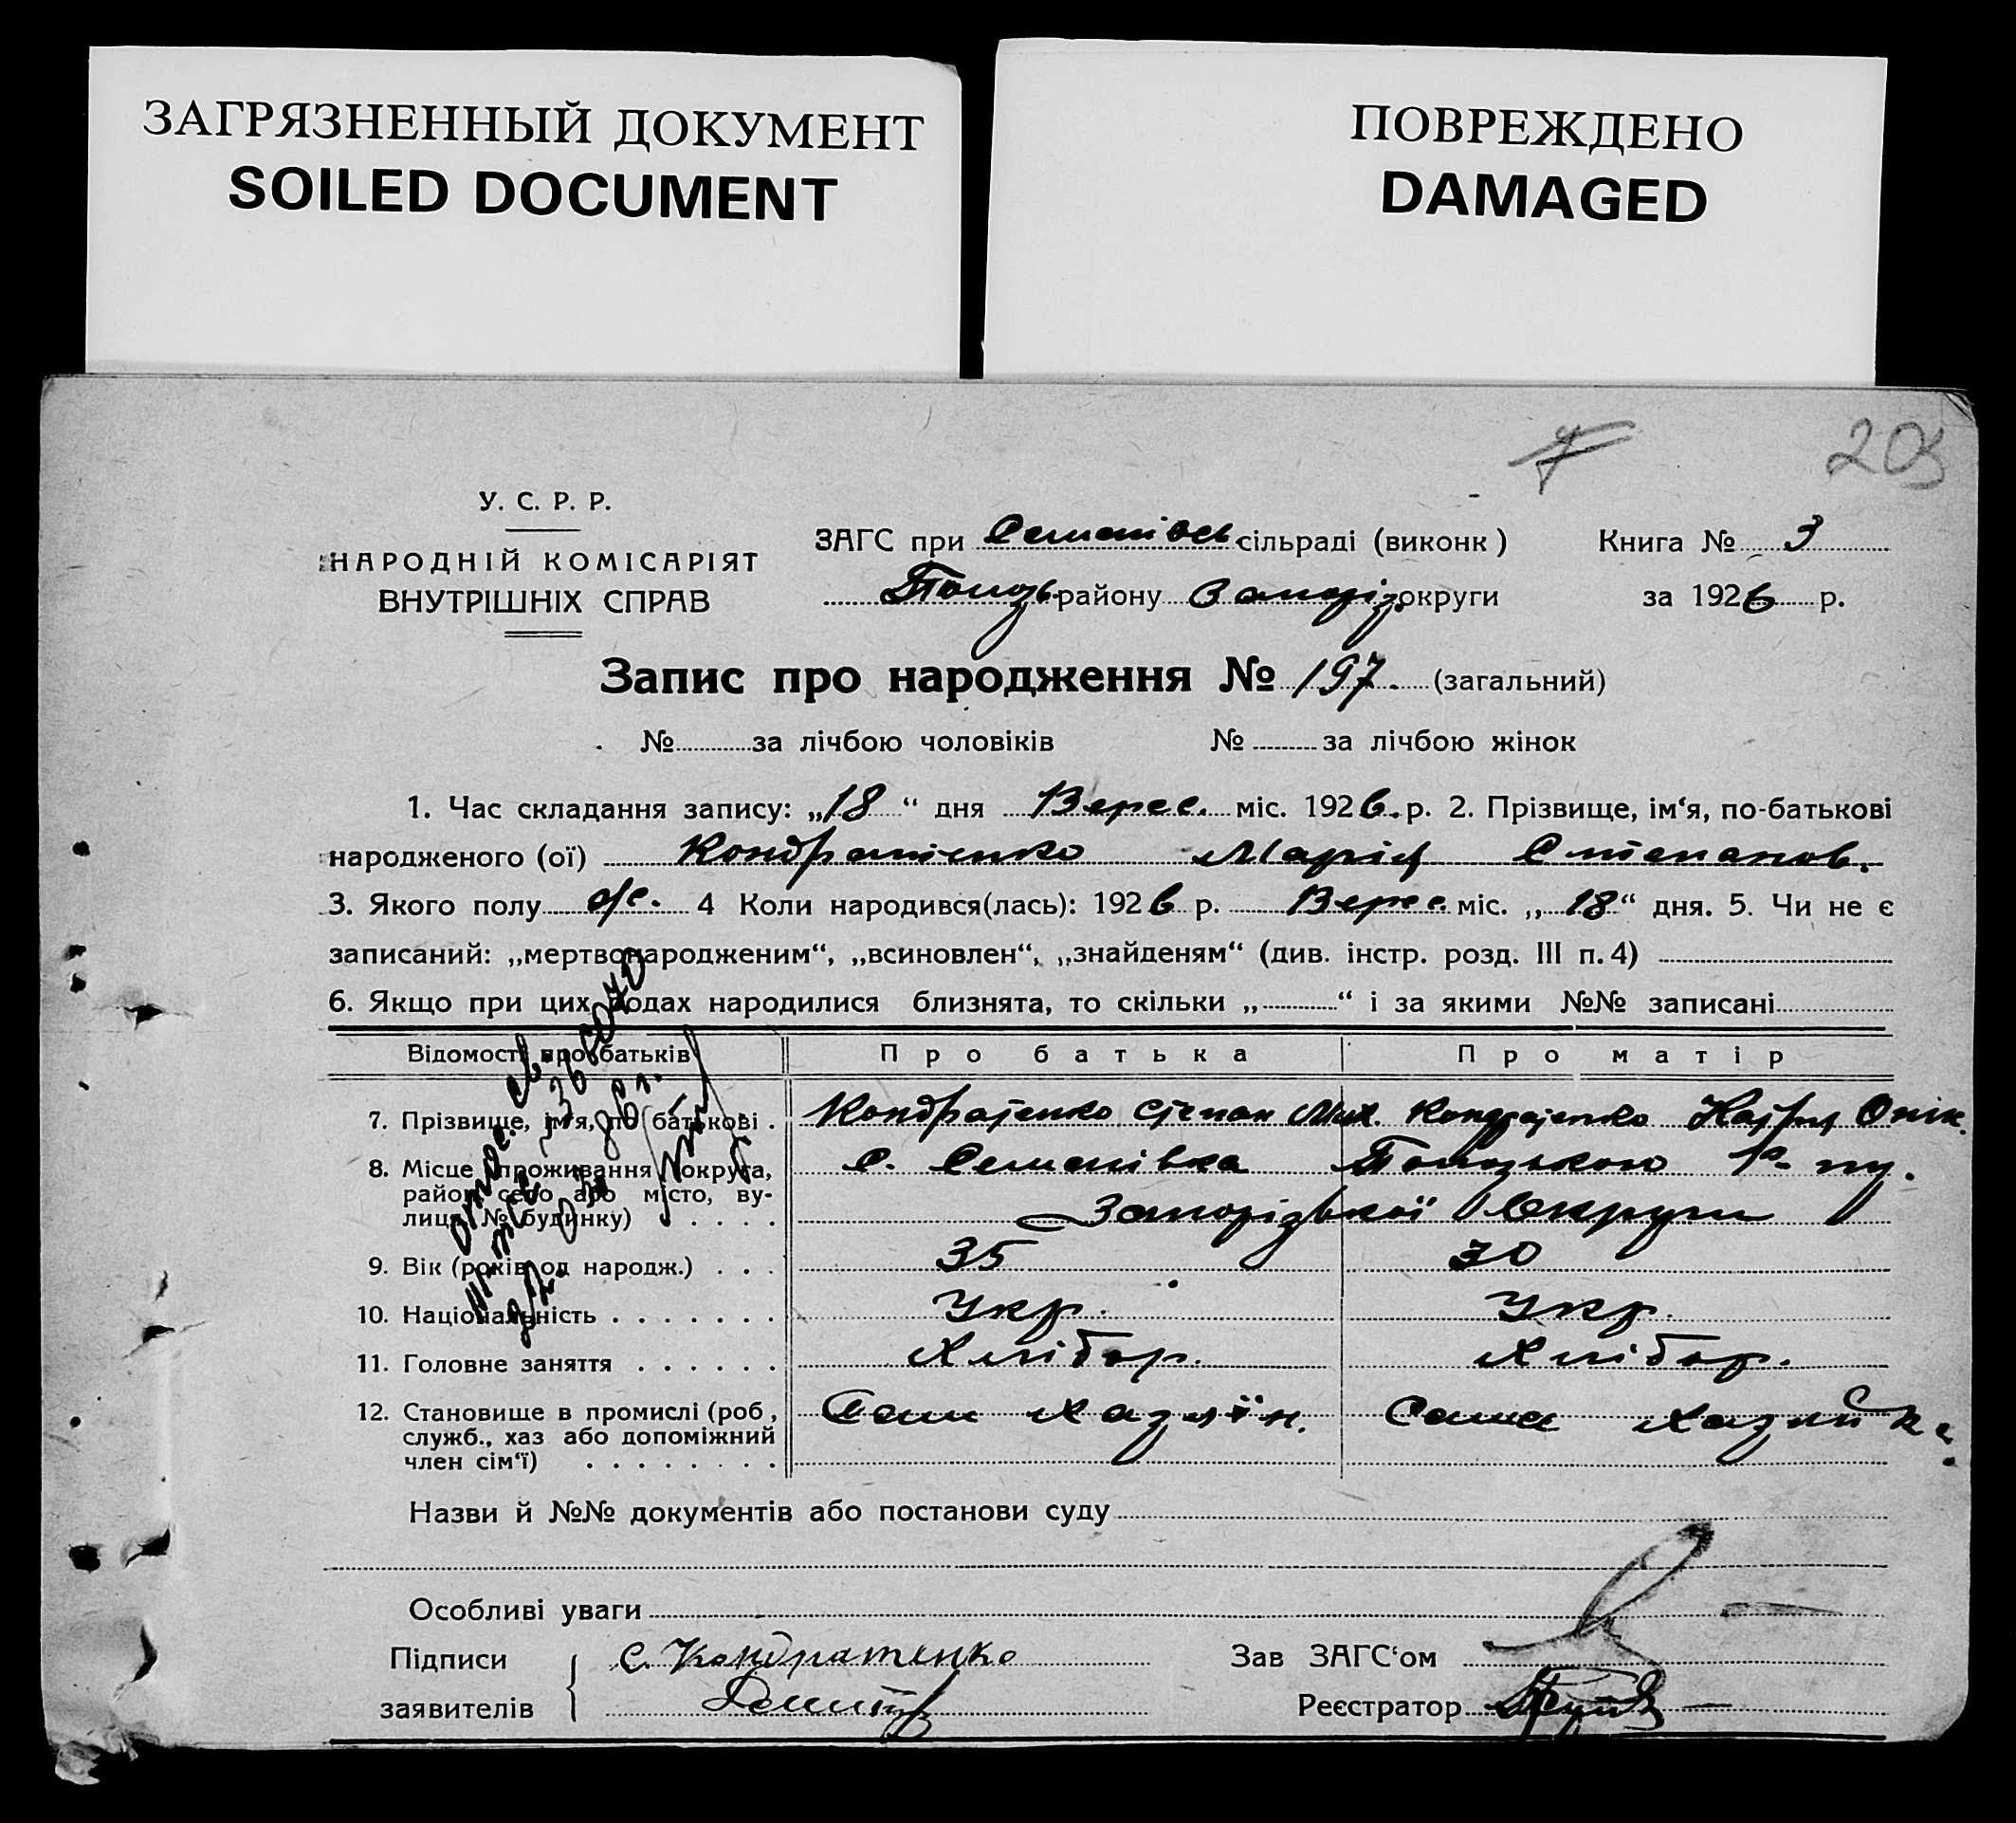 ЗАГРЯЗНЕННЫЙ ДОКУМЕНТ
SOILED DOCUMENT
ПОВРЕЖДЕНО
DAMAGED
7 203
У. С. Р. Р.
НАРОДНІЙ КОМІСАРІЯТ
ВНУТРІШНІХ СПРАВ
ЗАГС при Семенівсь сільраді (виконк) Книга № 3
району Запоріз. округи за 1926 р.
Запис про народження № 197. (загальний)
№ за лічбою чоловіків № за лічбою жінок
1. Час складання запису: „18“ дня Верес. міс. 1926. р. 2. Прізвище, ім‘я, по-батькові
народженого (ої) Кондратенко Марія Степанов.
3. Якого полу ж. 4 Коли народився(лась): 1926 р. Верес. міс. „18“ дня. 5. Чи не є
записаний: „мертвонародженим“, „всиновлен“, „знайденям“ (див. інстр. розд. III п. 4)
6. Якщо при цих родах народилися близнята, то скільки „ “ і за якими №№ записані
Відомості про батьків Про батька Про матір
7. Прізвище, ім‘я, по батькові . Кондратенко Степан Мих. Кондратенко Катря Онік.
8. Місце проживання (округа, район, село або місто, вулиця, № будинку) с. Семенівка
Запорізької Округи
9. Вік (років од народж.) . . . 35 30
10. Національність . . . . . . . Укр. Укр.
11. Головне заняття . . . . . . Хлібор. Хлібор.
12. Становище в промислі (роб, служб., хаз або допоміжний член сім‘ї) . . . . . . . . Сам Хазяїн. Сама Хазяйка
Назви й №№ документів або постанови суду
Особливі уваги
Підписи С. Кондратенко Зав ЗАГС‘ом
заявителів Реєстратор